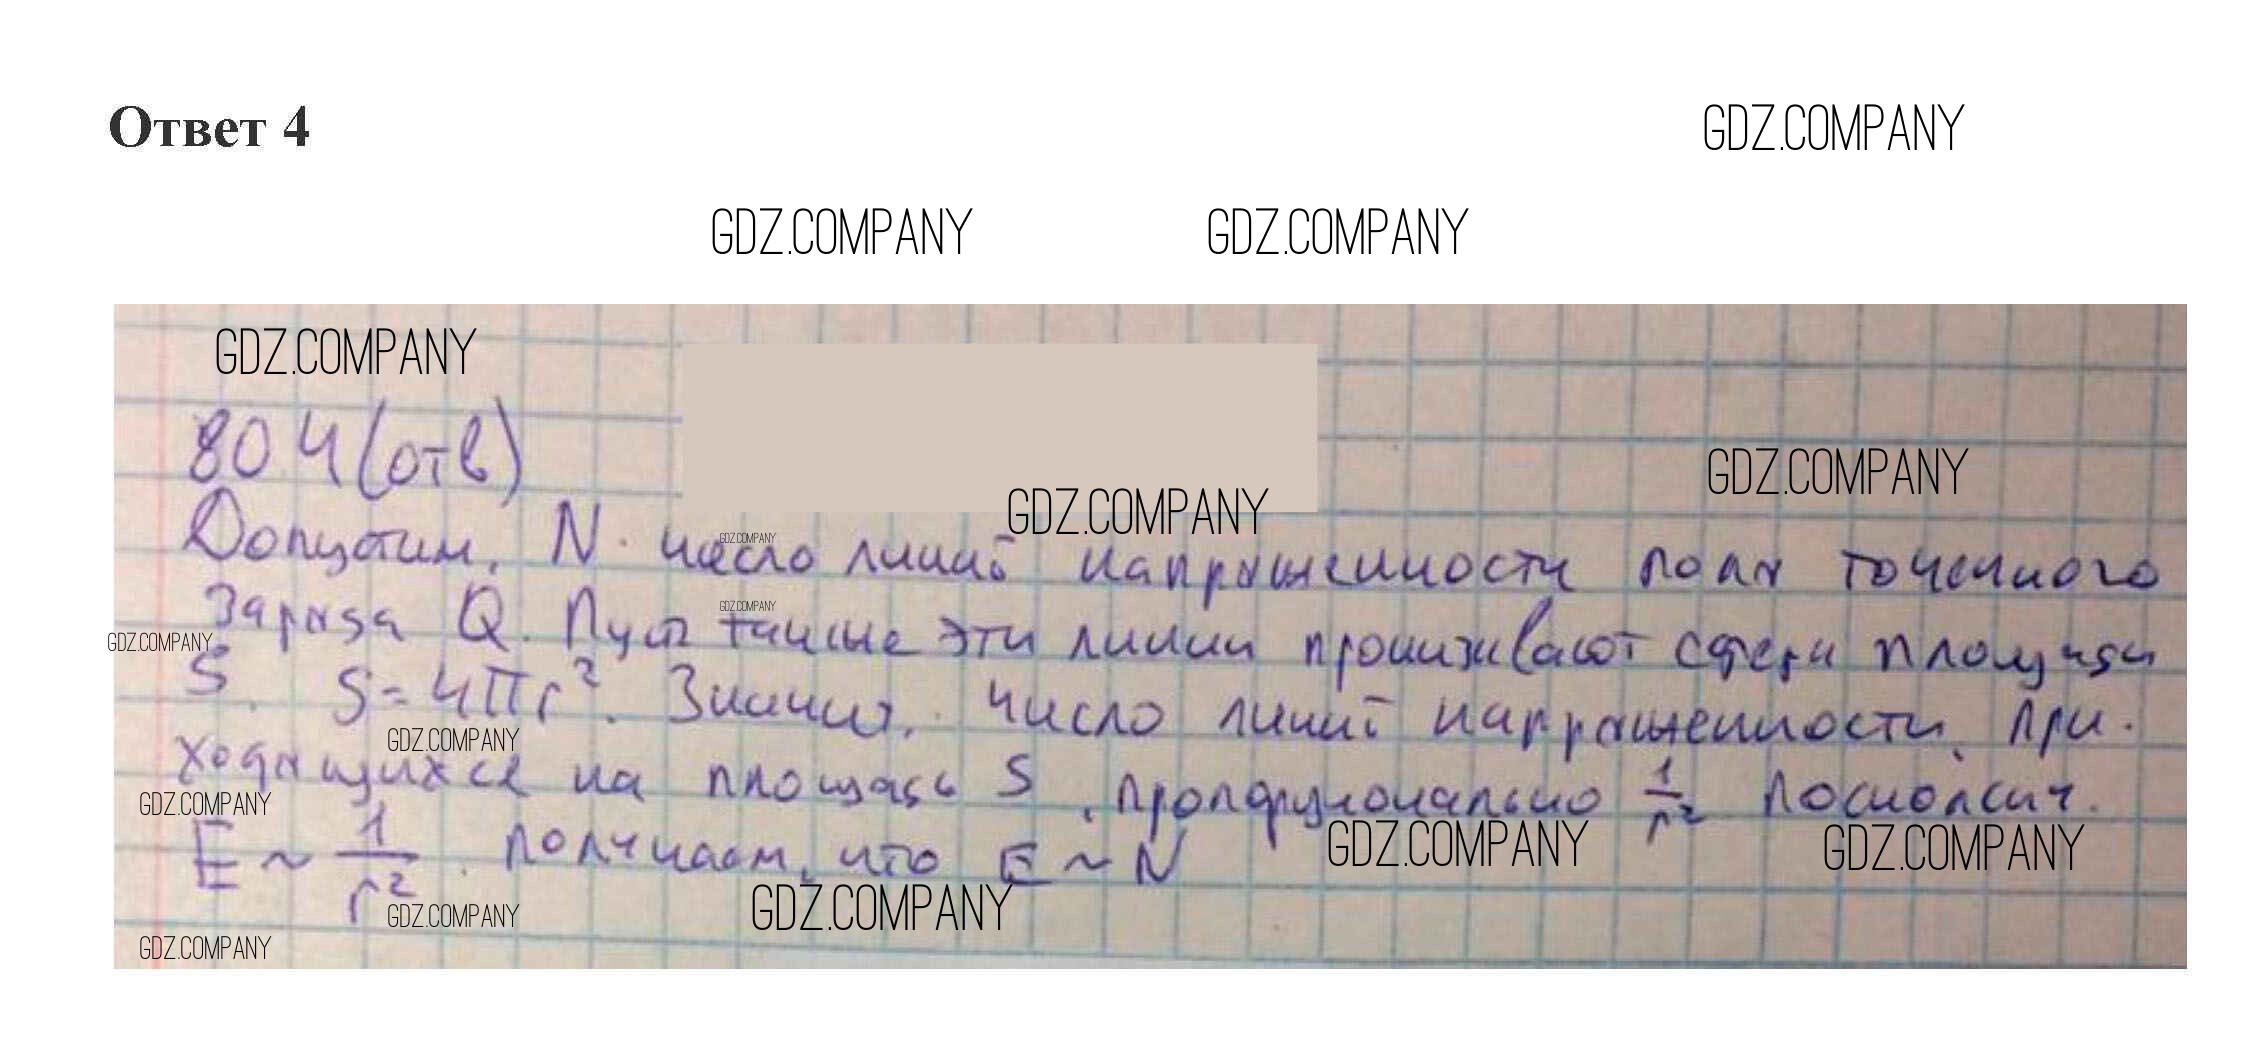 Ответ 4
GDZ.COMPANY
GDZ.COMPANY GDZ.COMPANY
GDZ.COMPANY
804(отв)
GDZ.COMPANY
GDZ.COMPANY
Допустим, N число линий напряженности поля точечного
GDZ.COMPANY
заряда Q. Пусть также эти линии пронизывают сферы площади
GDZ.COMPANY
GDZ.COMPANY
S. S=4πr². Значит, число линий напряженности, при-
GDZ.COMPANY
ходящихся на площадь S, пропорционально 1/r² поскольку
GDZ.COMPANY
E ~ 1/r². получаем, что E ~ N
GDZ.COMPANY GDZ.COMPANY
GDZ.COMPANY GDZ.COMPANY
GDZ.COMPANY